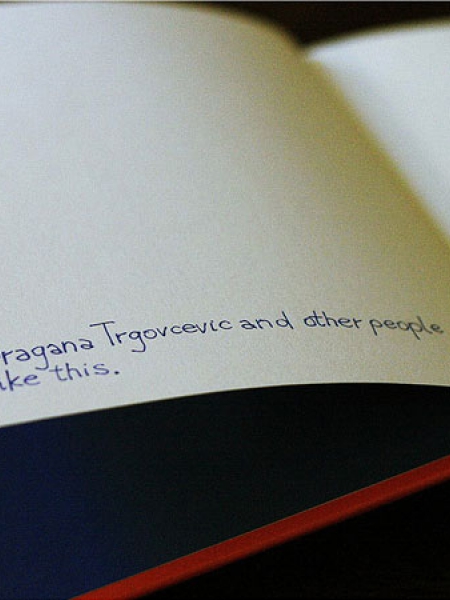 ragana Trgovcevic and other people
ke this.